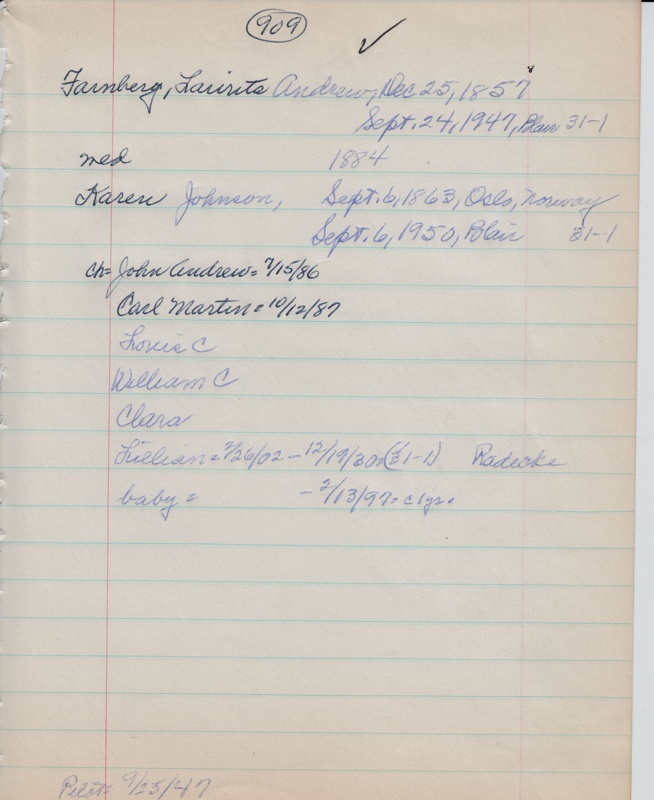 909 ✓
Farnberg, Laurits Andrew, Dec 25, 1857
Sept. 24, 1947, Blair 31-1
med 1884
Karen Johnson, Sept. 6, 1863, Oslo, Norway
Sept. 6, 1950, Blair 31-1
ch= John Andrew= 7/15/86
Carl Martin= 10/12/87
Louis C
William C
Clara
Lillian= 2/26/02 - 12/19/30= (31-1) Radecke
baby= - 2/13/97= c1yr.
Pilot= 9/25/47